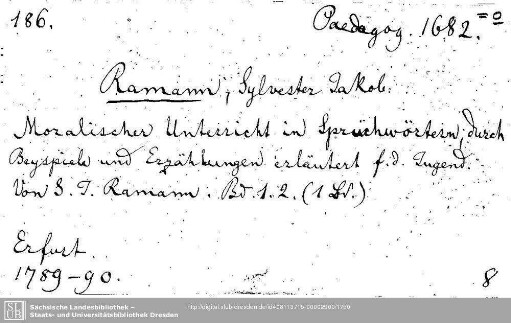 186.
Paedagog. 1682.=o
Ramann, Sylvester Jakob.
Moralischer Unterricht in Sprüchwörtern, durch
Beyspiele und Erzählungen erläutert f. d. Jugend.
Von S. J. Ramann. Bd. 1. 2. (1 Bd.)
Erfurt.
1789-90.
8
SLUB
Sächsische Landesbibliothek –
Staats- und Universitätsbibliothek Dresden